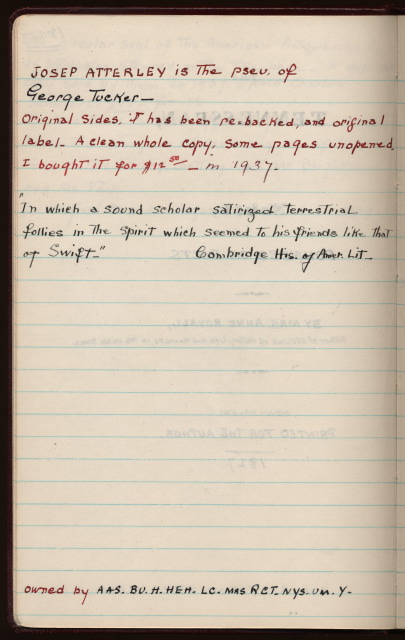 JOSEP ATTERLEY is The pseu. of
George Tucker—
Original sides, it has been re-backed, and original
label. A clean whole copy, some pages unopened.
I bought it for $12⁵⁰ — in 1937.
"In which a sound scholar satirized terrestrial
follies in the spirit which seemed to his friends like that
of Swift."      Cambridge His. of Amer. Lit.
owned by AAS. BU. H. HEH. LC. MAS RCT. NYS. UM. Y.